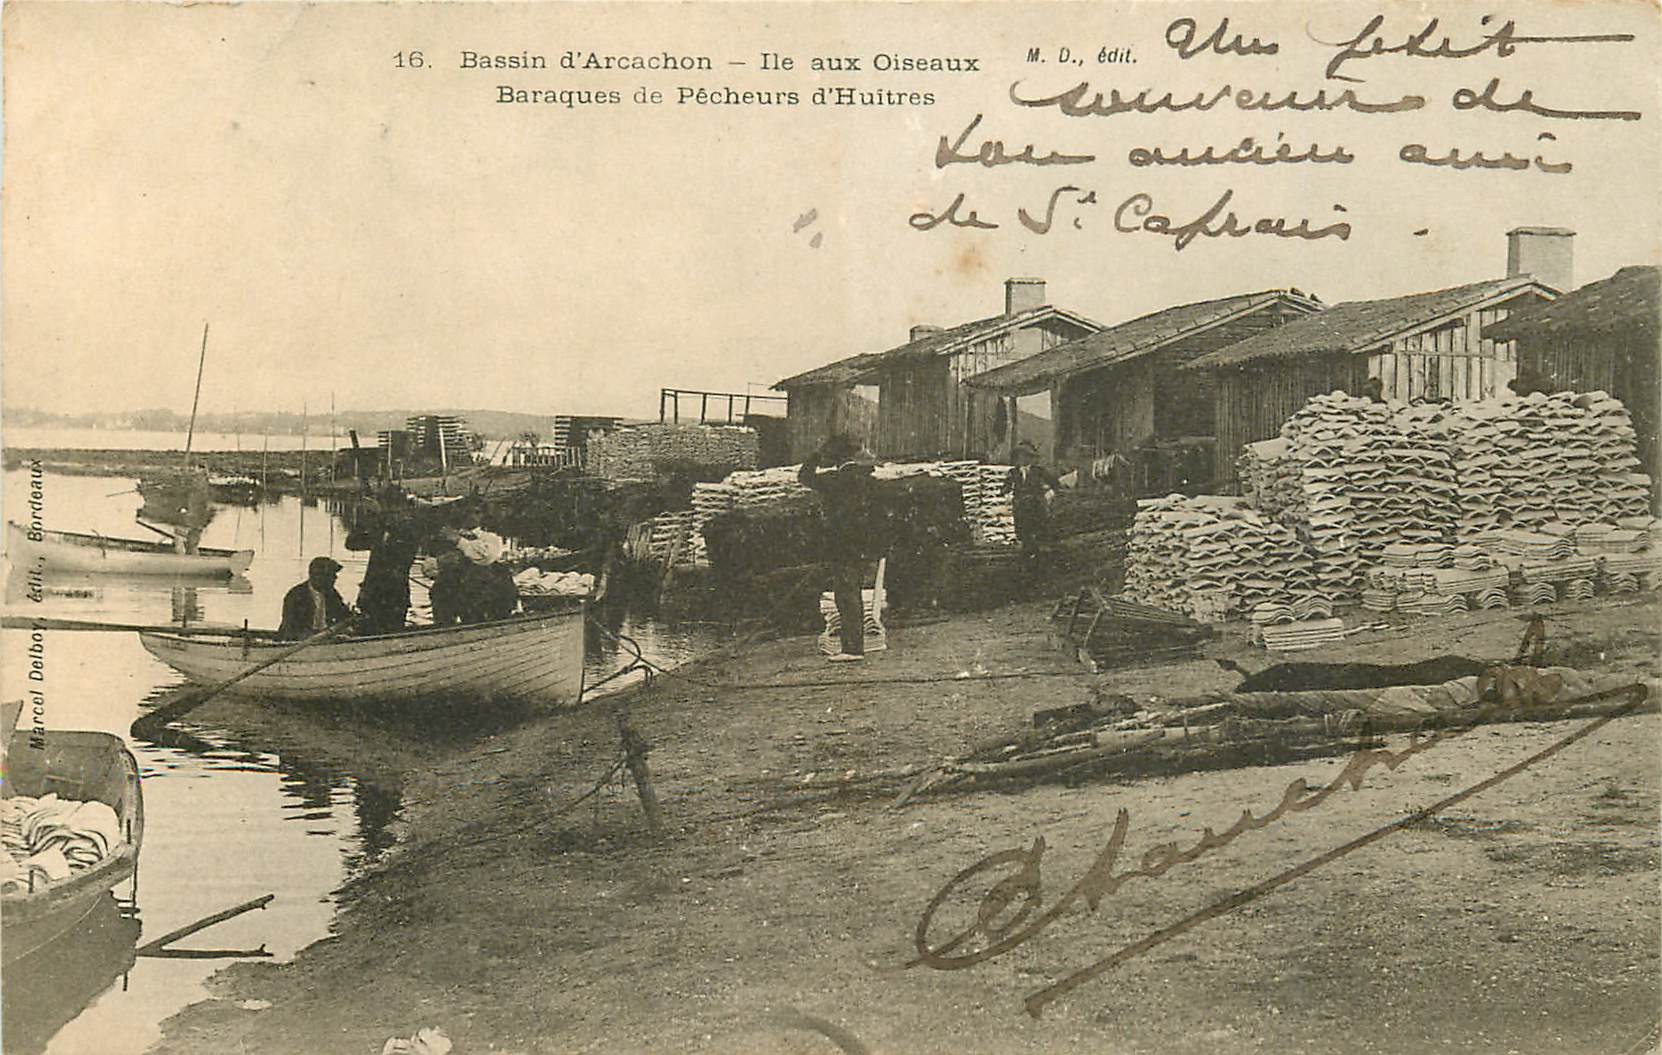 16. Bassin d'Arcachon – Ile aux Oiseaux
Baraques de Pêcheurs d'Huîtres
M. D., édit.
Un petit
souvenir de
ton ancien ami
de St Caprais.
Marcel Delboy, édit., Bordeaux